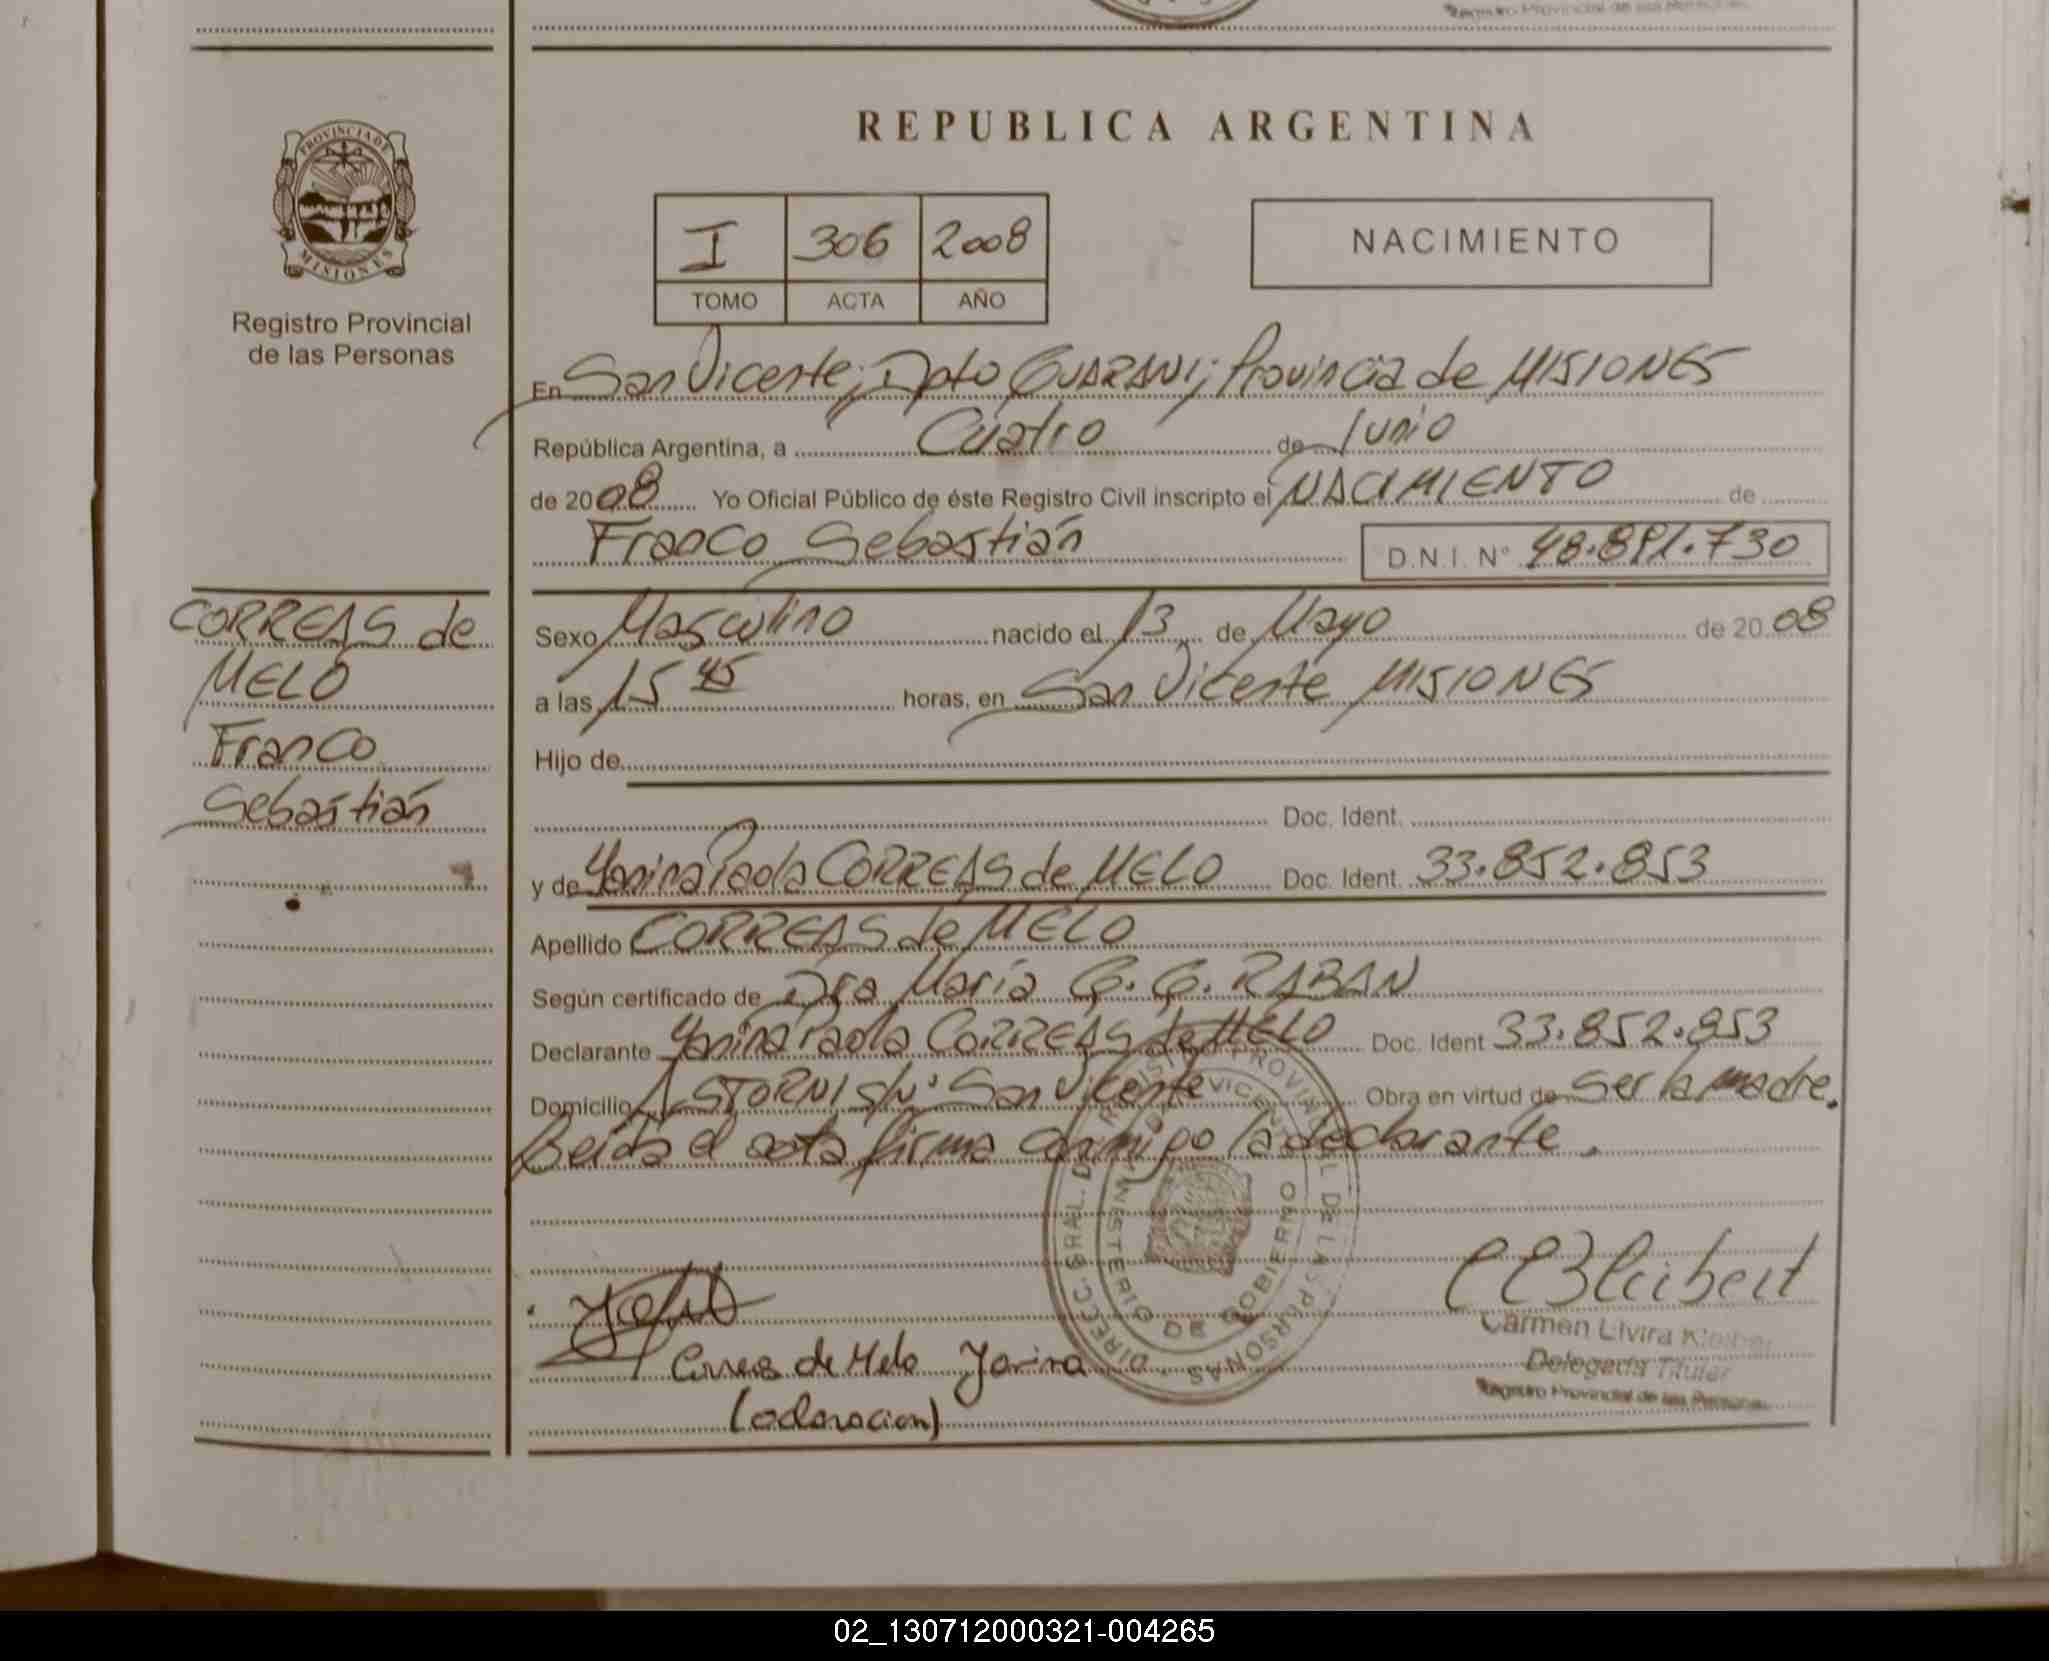 Registro Provincial de las Personas
REPUBLICA ARGENTINA
PROVINCIA DE
MISIONES
Registro Provincial
de las Personas
I 306 2008
TOMO ACTA AÑO
NACIMIENTO
En San Vicente; Dpto GUARANI; Provincia de MISIONES
República Argentina, a Cuatro de Junio
de 2008 Yo Oficial Público de éste Registro Civil inscripto el NACIMIENTO de
Franco Sebastián D.N.I. Nº 48.891.730
CORREAS de
MELO
Franco
Sebastián
Sexo Masculino nacido el 13 de Mayo de 2008
a las 15 45 horas, en San Vicente MISIONES
Hijo de
Doc. Ident.
y de Yanina Paola CORREAS de MELO Doc. Ident. 33.852.853
Apellido CORREAS de MELO
Según certificado de Dra María G. G. RABAN
Declarante Yanina Paola CORREAS de MELO Doc. Ident 33.852.853
Domicilio A. STORNI s/nº San Vicente Obra en virtud de ser la madre.
Leída el acta firma conmigo la declarante.
DIRECC. GRAL. DEL REGISTRO PROVINCIAL DE LAS PERSONAS
MINISTERIO DE GOBIERNO
Correas de Melo Yanina
(aclaracion)
Carmen Elvira Kleibert
Delegada Titular
Registro Provincial de las Personas
02_130712000321-004265